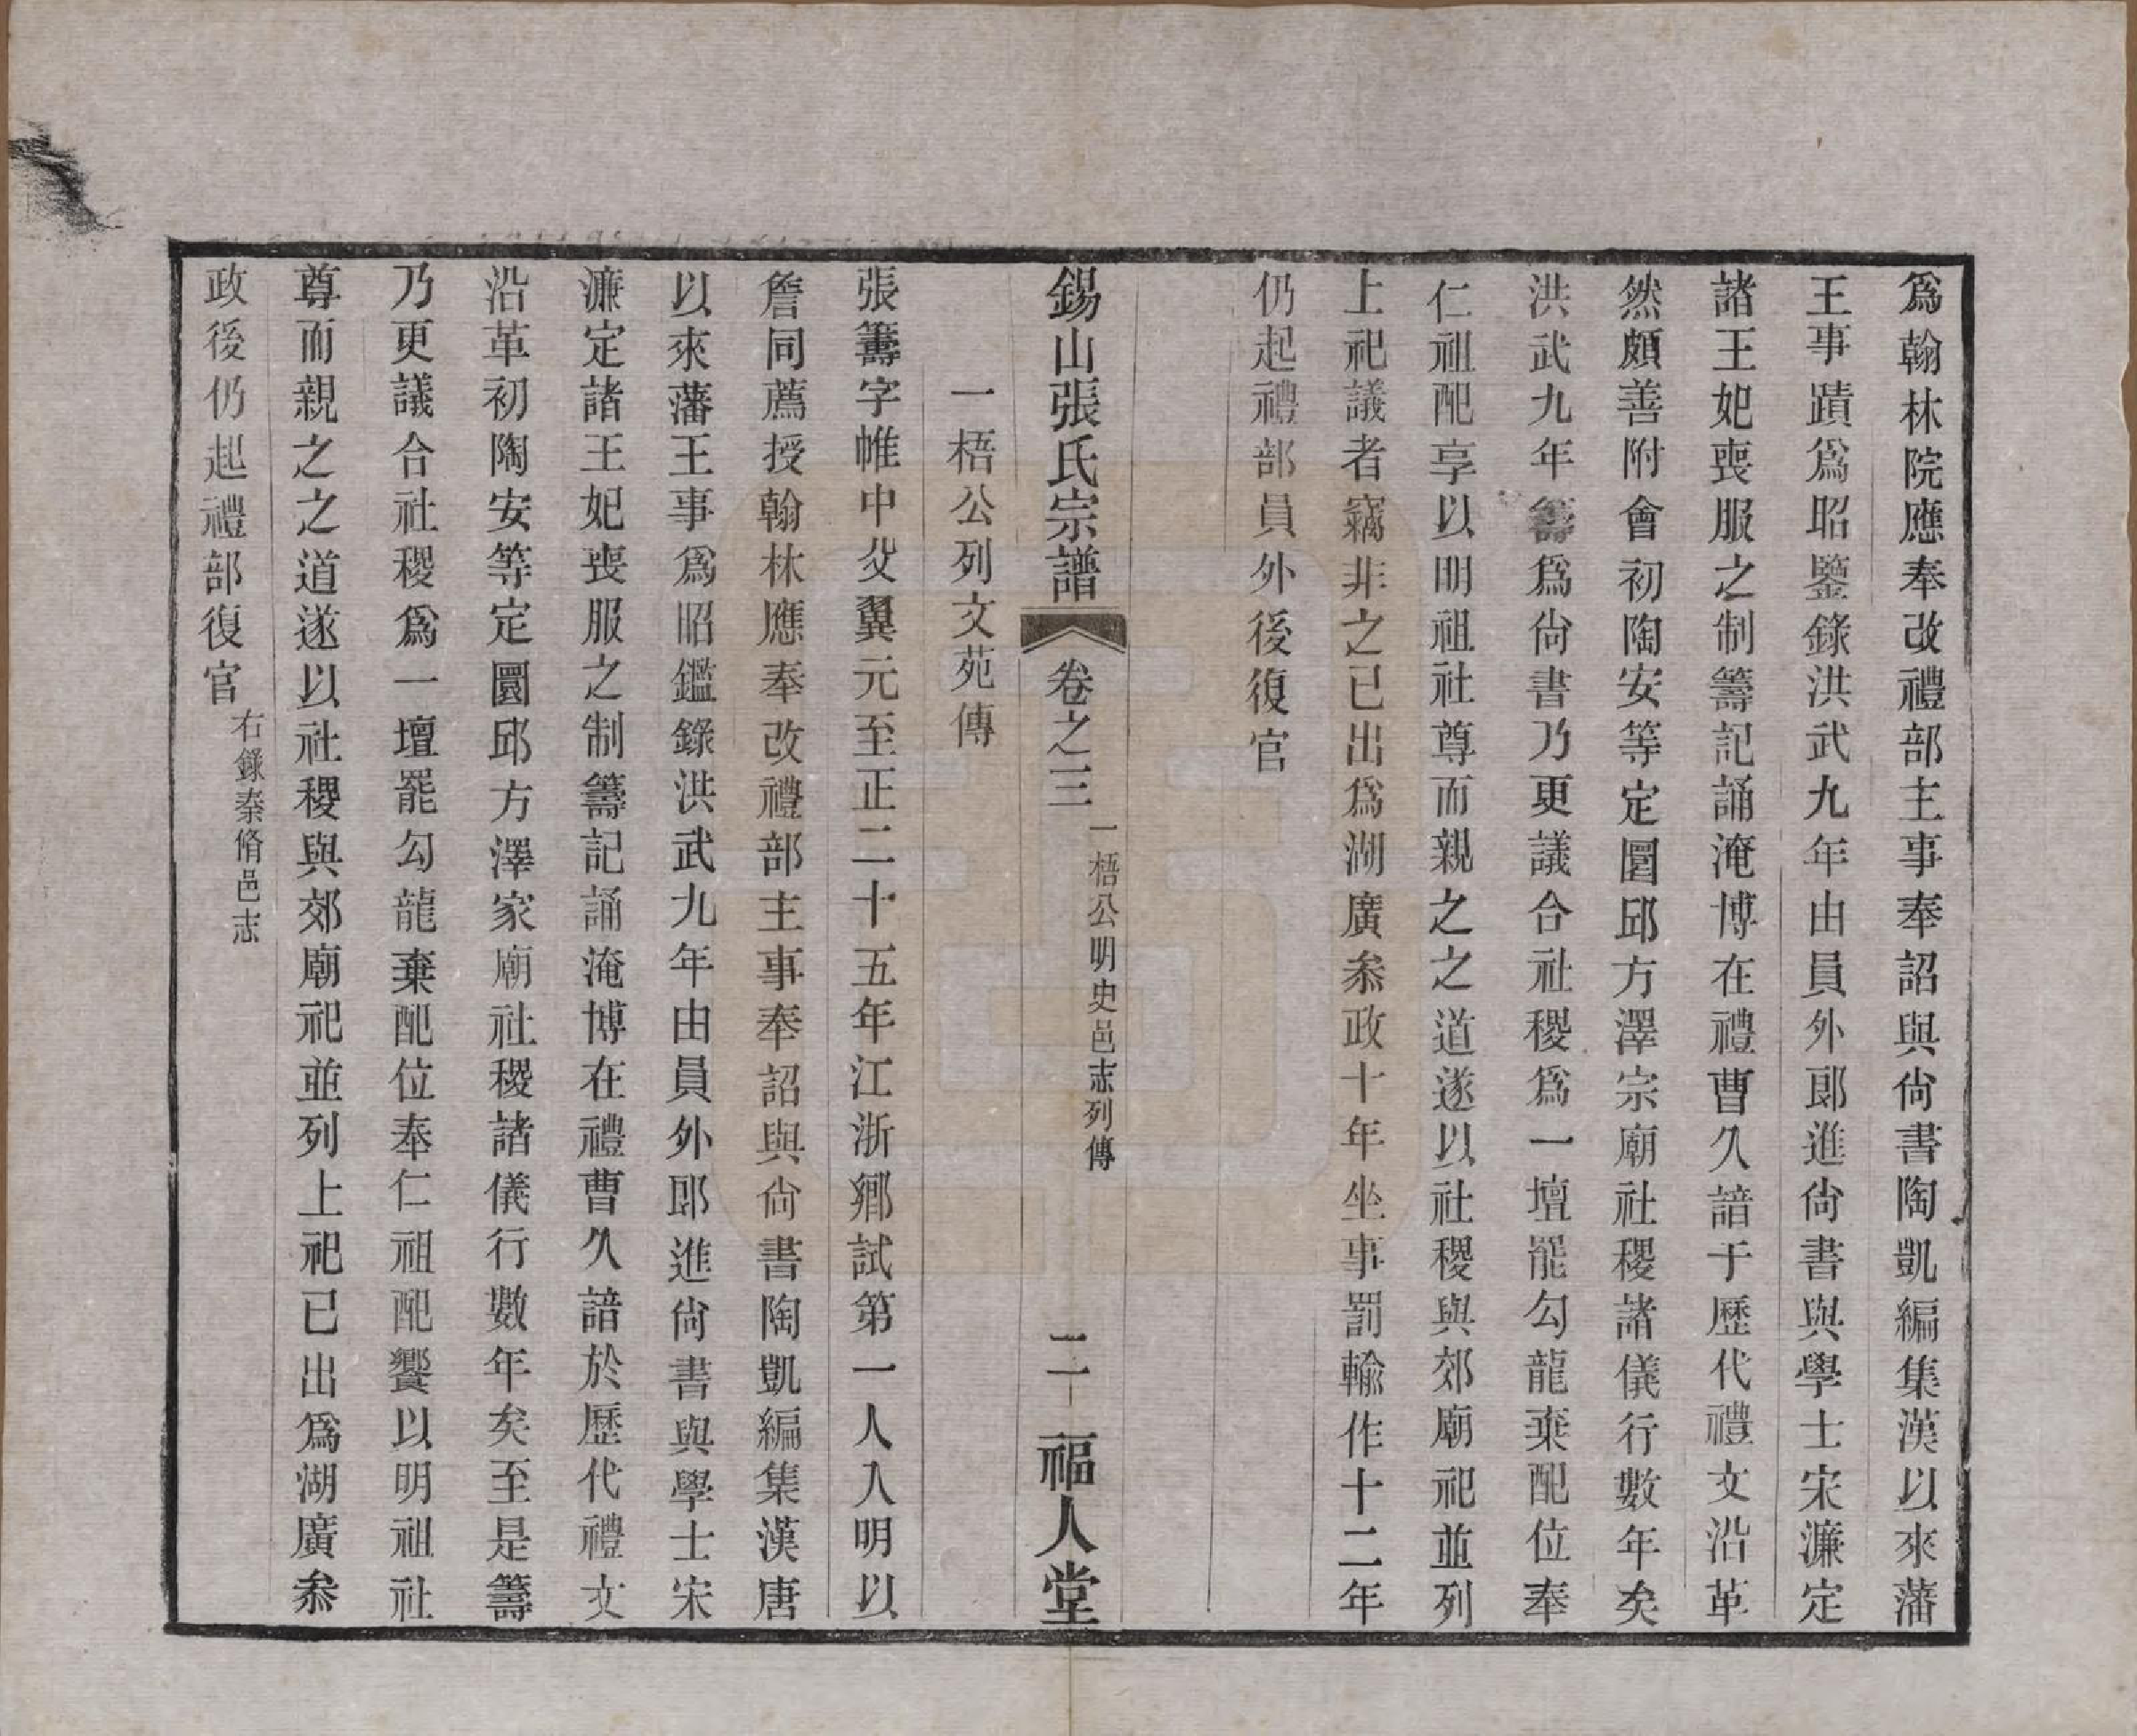 爲翰林院應奉改禮部主事奉詔與尙書陶凱編集漢以來藩
王事蹟爲昭鑒錄洪武九年由員外郎進尙書與學士宋濂定
諸王妃喪服之制籌記誦淹博在禮曹久諳于歷代禮文沿革
然頗善附會初陶安等定圜邱方澤宗廟社稷諸儀行數年矣
洪武九年籌爲尙書乃更議合社稷爲一壇罷勾龍棄配位奉
仁祖配享以明祖社尊而親之之道遂以社稷與郊廟祀並列
上祀議者竊非之已出爲湖廣叅政十年坐事罰輸作十二年
仍起禮部員外後復官
錫山張氏宗譜
卷之三
一梧公明史邑志列傳
二
福人堂
一梧公列文苑傳
張籌字帷中父翼元至正二十五年江浙鄉試第一人入明以
詹同薦授翰林應奉改禮部主事奉詔與尙書陶凱編集漢唐
以來藩王事爲昭鑑錄洪武九年由員外郎進尙書與學士宋
濂定諸王妃喪服之制籌記誦淹博在禮曹久諳於歷代禮文
沿革初陶安等定圜邱方澤家廟社稷諸儀行數年矣至是籌
乃更議合社稷爲一壇罷勾龍棄配位奉仁祖配饗以明祖社
尊而親之之道遂以社稷與郊廟祀並列上祀已出爲湖廣叅
政後仍起禮部復官
右錄秦脩邑志